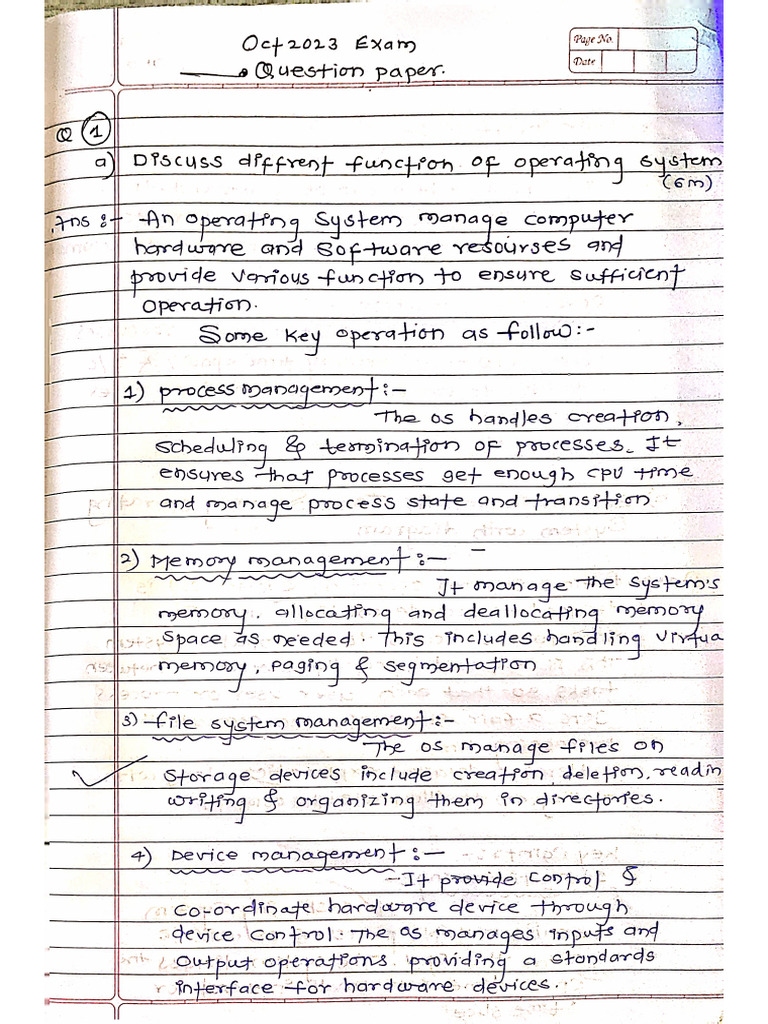 Oct 2023 Exam
Question paper.
Page No.
Date
Q 1
a) Discuss diffrent function of operating system
(6m)
Ans :- An operating system manage computer
hardware and software resourses and
provide various function to ensure sufficient
operation.
Some key operation as follow:-
1) process management:-
The os handles creation,
scheduling & termination of processes. It
ensures that processes get enough CPU time
and manage process state and transition
2) Memory management:-
It manage the system's
memory, allocating and deallocating memory
space as needed. This includes handling virtua
memory, paging & segmentation
3) file system management:-
The os manage files on
storage devices include creation, deletion, readin
writing & organizing them in directories.
4) Device management:-
-It provide control &
co-ordinate hardware device through
device control. The os manages inputs and
output operations providing a standards
interface for hardware devices.